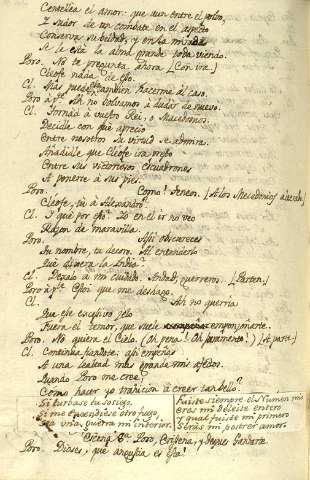 Centellea el amor: que aun entre el polvo,
Y sudor de un combate en el aspecto
Conserva su beldad; y en la mirada
Se le está la alma grande toda viendo.
Poro. No te pregunta ahora [Con ira.]
Cleofe nada de eso.
Cl. Mas puede tambien hacerme al caso.
Poro ap.te Ah no bolvamos à dudar de nuevo.
Cl. Tornad à vuestro Rei, o Macedonios.
Decidle con que aprecio
Entre nosotros su virtud se admira.
Añadidle que Cleofe irá presto
Entre sus victoriosos Escuadrones
A ponerse à sus pies.
Poro. Como! Teneos. [A los Macedonios, à ella.]
Cleofe, tú à Alexandro?
Cl. Y que por eso? Yo en el ir no veo
Razon de maravilla.
Poro. Asi obscureces
Tu nombre, tu decoro. Al entenderlo
Que dixera la India?
Cl. Dexalo à mi cuidado. Andad, guerreros. [Parten.]
Poro ap.te Casi que me deshago.
Cl. Ah no querria
Que ese excesivo zelo
Fuera el temor, que suele emponzoñarte.
Poro. No quiera el Cielo. (Oh pena! Oh juramento!) [A parte.]
Cl. Continua fiandote: asi empeñas
A una lealtad mas grande mis afectos.
Quando Poro me cree;
Como hacer yo traicion à creer tan bello?
Si turbase tu sosiego,
Si me encendiese otro fuego,
Sea una guerra mi interior.
Fuiste siempre el Numen mio
eres mi deleite entero
y qual fuiste mi primero
Serás mi postrer amor.
Scena 8.a Poro, Erixena, y despues Gandarte
Poro. Dioses, que angustia es esta!